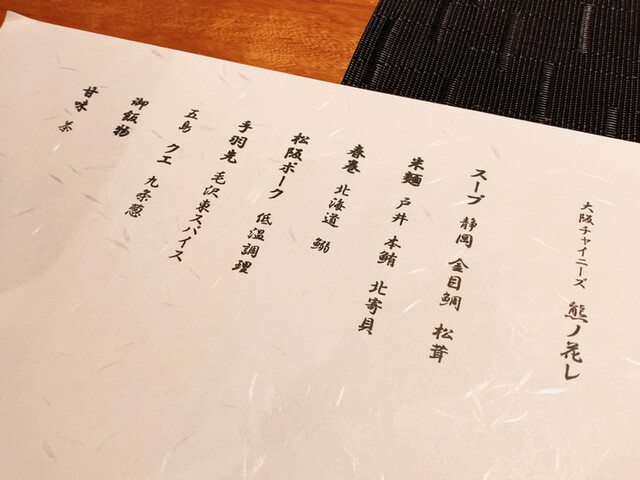 大阪チャイニーズ 熊ノ花し
スープ 静岡 金目鯛 松茸
米麺 戸井 本鮪 北寄貝
春巻 北海道 鰯
松阪ポーク 低温調理
手羽先 毛沢東スパイス
五島 クエ 九条葱
御飯物
甘味 茶